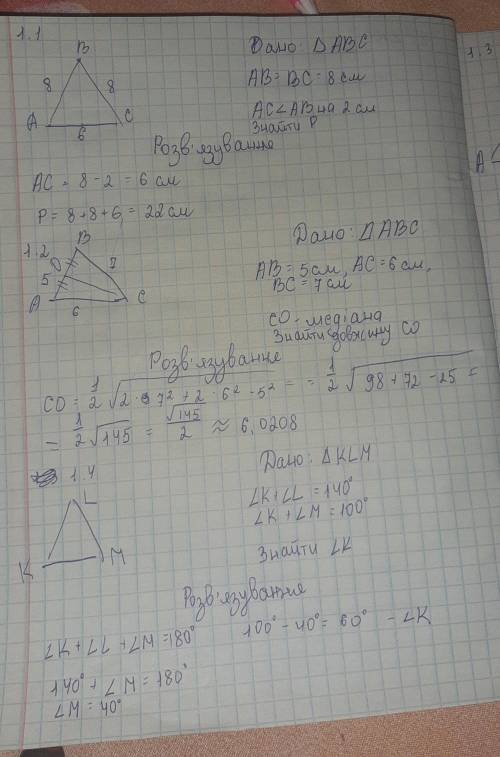 1.1
B
8 8
A C
6
Дано: △ABC
AB = BC = 8 см
AC∠AB на 2 см
Знайти P
Розв'язування
AC = 8 - 2 = 6 см
P = 8 + 8 + 6 = 22 см
1.2
B
O 7
5
A C
6
Дано: △ABC
AB = 5 см, AC = 6 см,
BC = 7 см
CO - медіана
Знайти довжину CO
Розв'язування
CO = 1/2 √2·7² + 2·6² - 5² = = 1/2 √98 + 72 - 25 =
= 1/2 √145 = √145/2 ≈ 6,0208
1.4
L
K M
Дано: △KLM
∠K + ∠L = 140°
∠K + ∠M = 100°
Знайти ∠K
Розв'язування
∠K + ∠L + ∠M = 180°
100° - 40° = 60° - ∠K
140° + ∠M = 180°
∠M = 40°
1.3
A